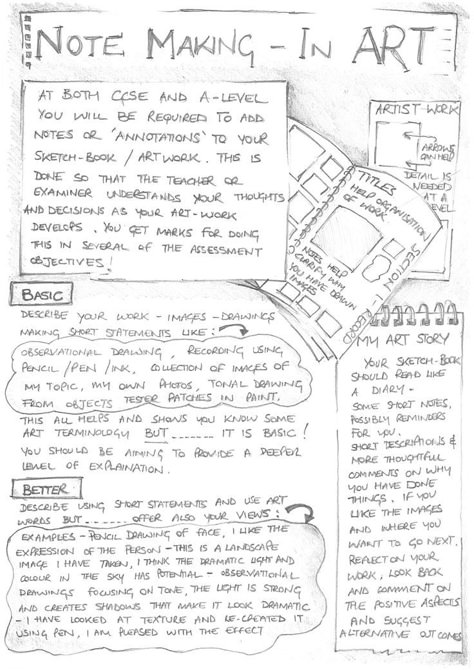 NOTE MAKING - IN ART
AT BOTH GCSE AND A-LEVEL
YOU WILL BE REQUIRED TO ADD
NOTES OR 'ANNOTATIONS' TO YOUR
SKETCH-BOOK / ARTWORK. THIS IS
DONE SO THAT THE TEACHER OR
EXAMINER UNDERSTANDS YOUR THOUGHTS
AND DECISIONS AS YOUR ART-WORK
DEVELOPS. YOU GET MARKS FOR DOING
THIS IN SEVERAL OF THE ASSESSMENT
OBJECTIVES!
ARTIST WORK
ARROWS
CAN HELP
DETAIL IS
NEEDED
AT A
LEVEL
TITLES
HELP ORGANISATION
OF WORK
NOTES HELP
CLARIFY WHY
YOU HAVE DRAWN
IMAGES
SECTION - 1
BASIC
DESCRIBE YOUR WORK - IMAGES - DRAWINGS
MAKING SHORT STATEMENTS LIKE:
OBSERVATIONAL DRAWING, RECORDING USING
PENCIL/PEN/INK, COLLECTION OF IMAGES OF
MY TOPIC, MY OWN PHOTOS, TONAL DRAWING
FROM OBJECTS TESTER PATCHES IN PAINT.
THIS ALL HELPS AND SHOWS YOU KNOW SOME
ART TERMINOLOGY BUT ...... IT IS BASIC!
YOU SHOULD BE AIMING TO PROVIDE A DEEPER
LEVEL OF EXPLAINATION.
BETTER
DESCRIBE USING SHORT STATEMENTS AND USE ART
WORDS BUT ...... OFFER ALSO YOUR VIEWS:
EXAMPLES - PENCIL DRAWING OF FACE, I LIKE THE
EXPRESSION OF THE PERSON - THIS IS A LANDSCAPE
IMAGE I HAVE TAKEN, I THINK THE DRAMATIC LIGHT AND
COLOUR IN THE SKY HAS POTENTIAL - OBSERVATIONAL
DRAWINGS FOCUSING ON TONE, THE LIGHT IS STRONG
AND CREATES SHADOWS THAT MAKE IT LOOK DRAMATIC
- I HAVE LOOKED AT TEXTURE AND RE-CREATED IT
USING PEN, I AM PLEASED WITH THE EFFECT
MY ART STORY
YOUR SKETCH-BOOK
SHOULD READ LIKE
A DIARY -
SOME SHORT NOTES,
POSSIBLY REMINDERS
FOR YOU.
SHORT DESCRIPTIONS &
MORE THOUGHTFUL
COMMENTS ON WHY
YOU HAVE DONE
THINGS. IF YOU
LIKE THE IMAGES
AND WHERE YOU
WANT TO GO NEXT.
REFLECT ON YOUR
WORK, LOOK BACK
AND COMMENT ON
THE POSITIVE ASPECTS
AND SUGGEST
ALTERNATIVE OUTCOMES